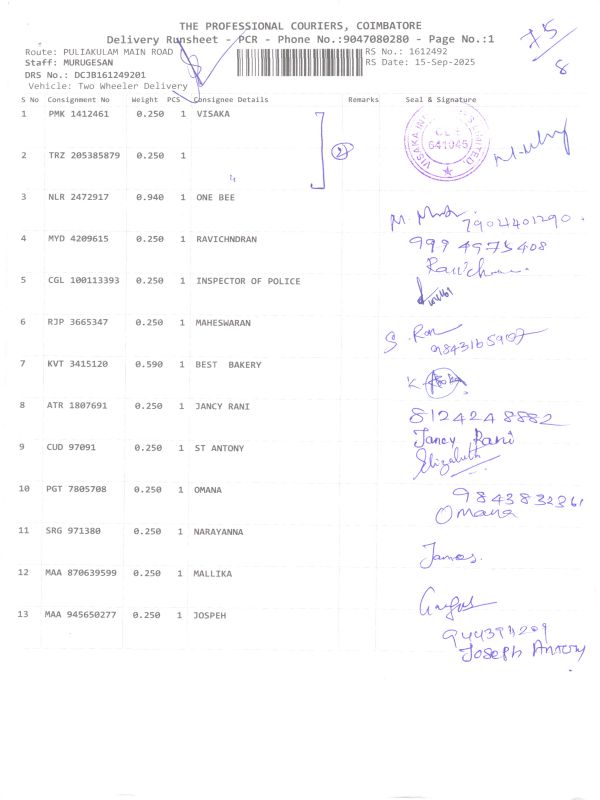 THE PROFESSIONAL COURIERS, COIMBATORE
Delivery Runsheet - PCR - Phone No.:9047080280 - Page No.:1
75/8
Route: PULIAKULAM MAIN ROAD RS No.: 1612492
Staff: MURUGESAN RS Date: 15-Sep-2025
DRS No.: DCJB161249201
Vehicle: Two Wheeler Delivery
S No Consignment No Weight PCS Consignee Details Remarks Seal & Signature
1 PMK 1412461 0.250 1 VISAKA
641045
2 TRZ 205385879 0.250 1
2
3 NLR 2472917 0.940 1 ONE BEE
7904401290
4 MYD 4209615 0.250 1 RAVICHNDRAN
9994975408
5 CGL 100113393 0.250 1 INSPECTOR OF POLICE
6 RJP 3665347 0.250 1 MAHESWARAN
9843165907
7 KVT 3415120 0.590 1 BEST BAKERY
8 ATR 1807691 0.250 1 JANCY RANI
8124248882
Jancy Rani
9 CUD 97091 0.250 1 ST ANTONY
Elizabeth
10 PGT 7805708 0.250 1 OMANA
9843832361
Omana
11 SRG 971380 0.250 1 NARAYANNA
James.
12 MAA 870639599 0.250 1 MALLIKA
13 MAA 945650277 0.250 1 JOSPEH
Joseph Antony